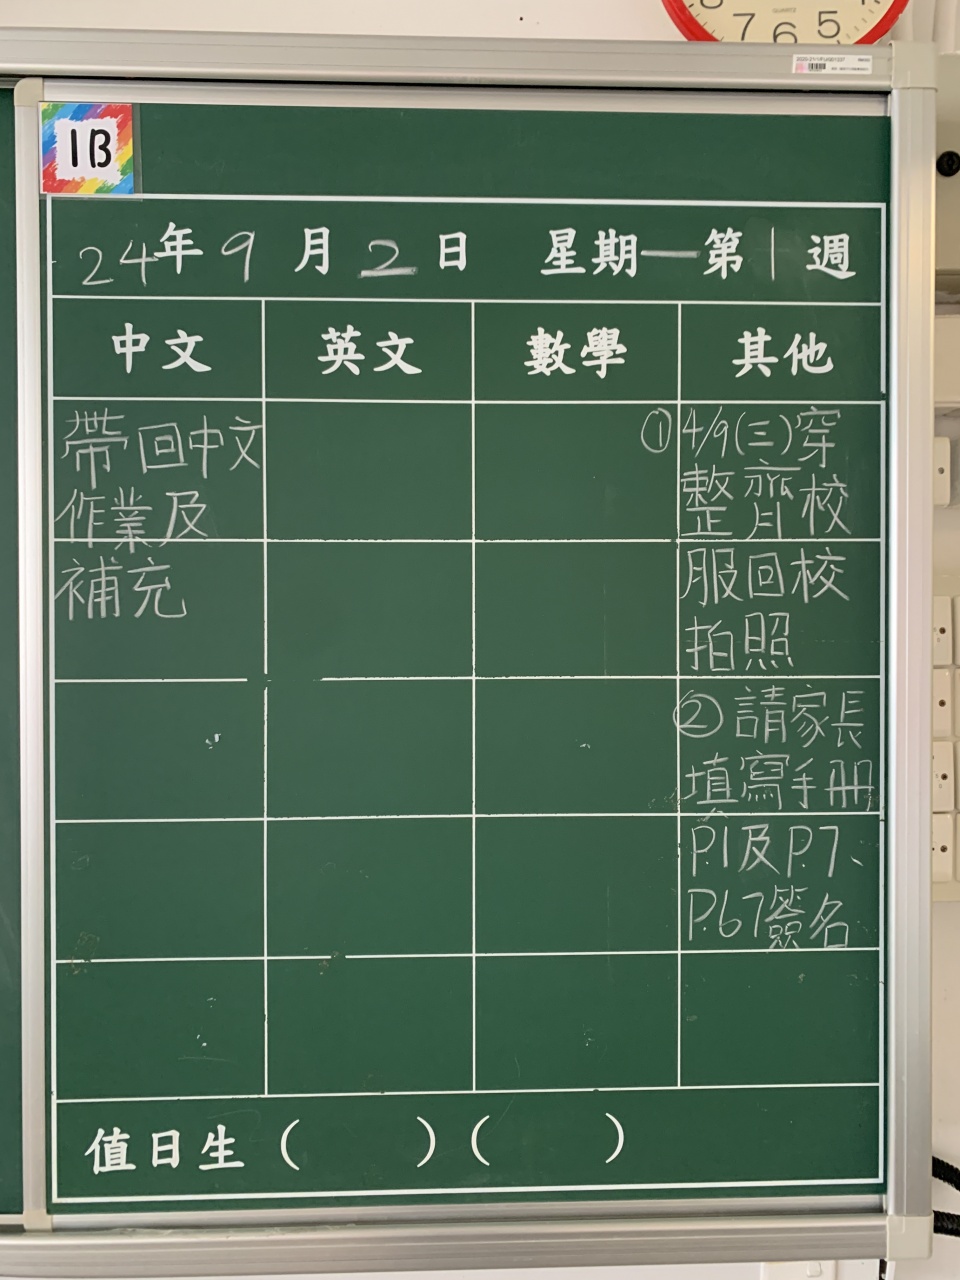 7 6 5
QUARTZ
1B
24年9月2日 星期一第1週
中文 英文 數學 其他
帶回中文
作業及
補充
①4/9(三)穿
整齊校
服回校
拍照
②請家長
填寫手冊
P.1及P.7、
P.67簽名
值日生 ( ) ( )